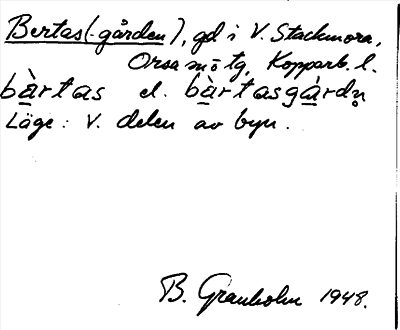 Bertas(-gården), gd i V. Stackmora,
Orsa sn o tg, Kopparb. l.
bàrtas el. bàrtasgárdn̥
Läge: V. delen av byn.
B. Granholm 1948.